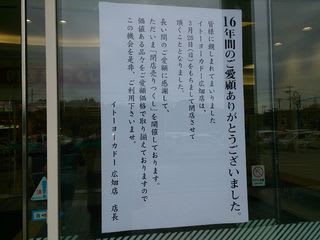 16年間のご愛顧ありがとうございました。
皆様に親しまれてまいりました
イトーヨーカドー広畑店は、
3月28日(日)をもちまして閉店させて
頂くこととなりました。
長い間のご愛顧に感謝して、
ただいま「閉店売りつくし」を開催しております。
価値ある品々をご愛顧価格で取り揃えておりますので
この機会を是非、ご利用下さいませ。
イトーヨーカドー広畑店 店長